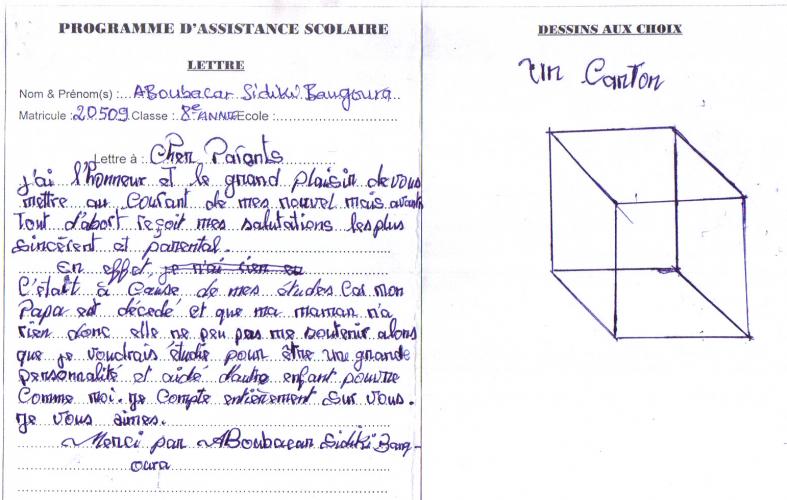 PROGRAMME D'ASSISTANCE SCOLAIRE
LETTRE
Nom & Prénom(s) :... ABoubacar Sidiki Bangoura
Matricule : 20509 Classe : 8e ANNÉE Ecole :
Lettre à : Cher Parants
j'ai l'honneur et le grand plaisir de vous
mettre au courant de mes nouvel mais avant
Tout d'abort reçoit mes salutations les plus
sincèrent et parental.
En effet, je n'ai rien eu
C'était à cause de mes études Car mon
Papa est décedé et que ma maman n'a
rien donc elle ne peu pas me soutenir alons
que je voudrais étudie pour être une grande
personnalité et aidé d'autre enfant pouvre
Comme moi. je compte entièrement sur vous.
je vous aimes.
Merci par ABoubacar Sidiki Bang-
oura
DESSINS AUX CHOIX
Un Carton